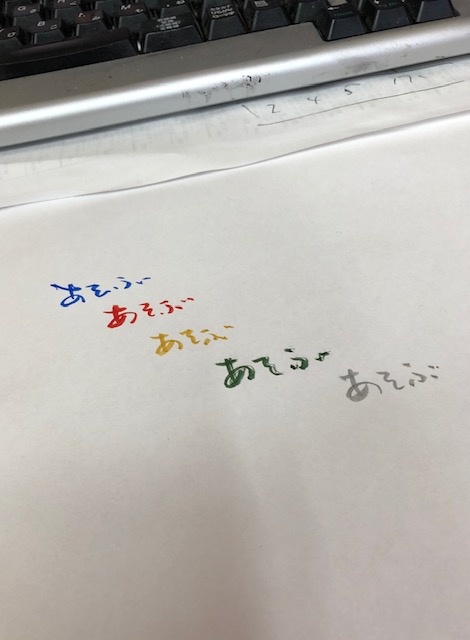 あそぶ
あそぶ
あそぶ
あそぶ
あそぶ